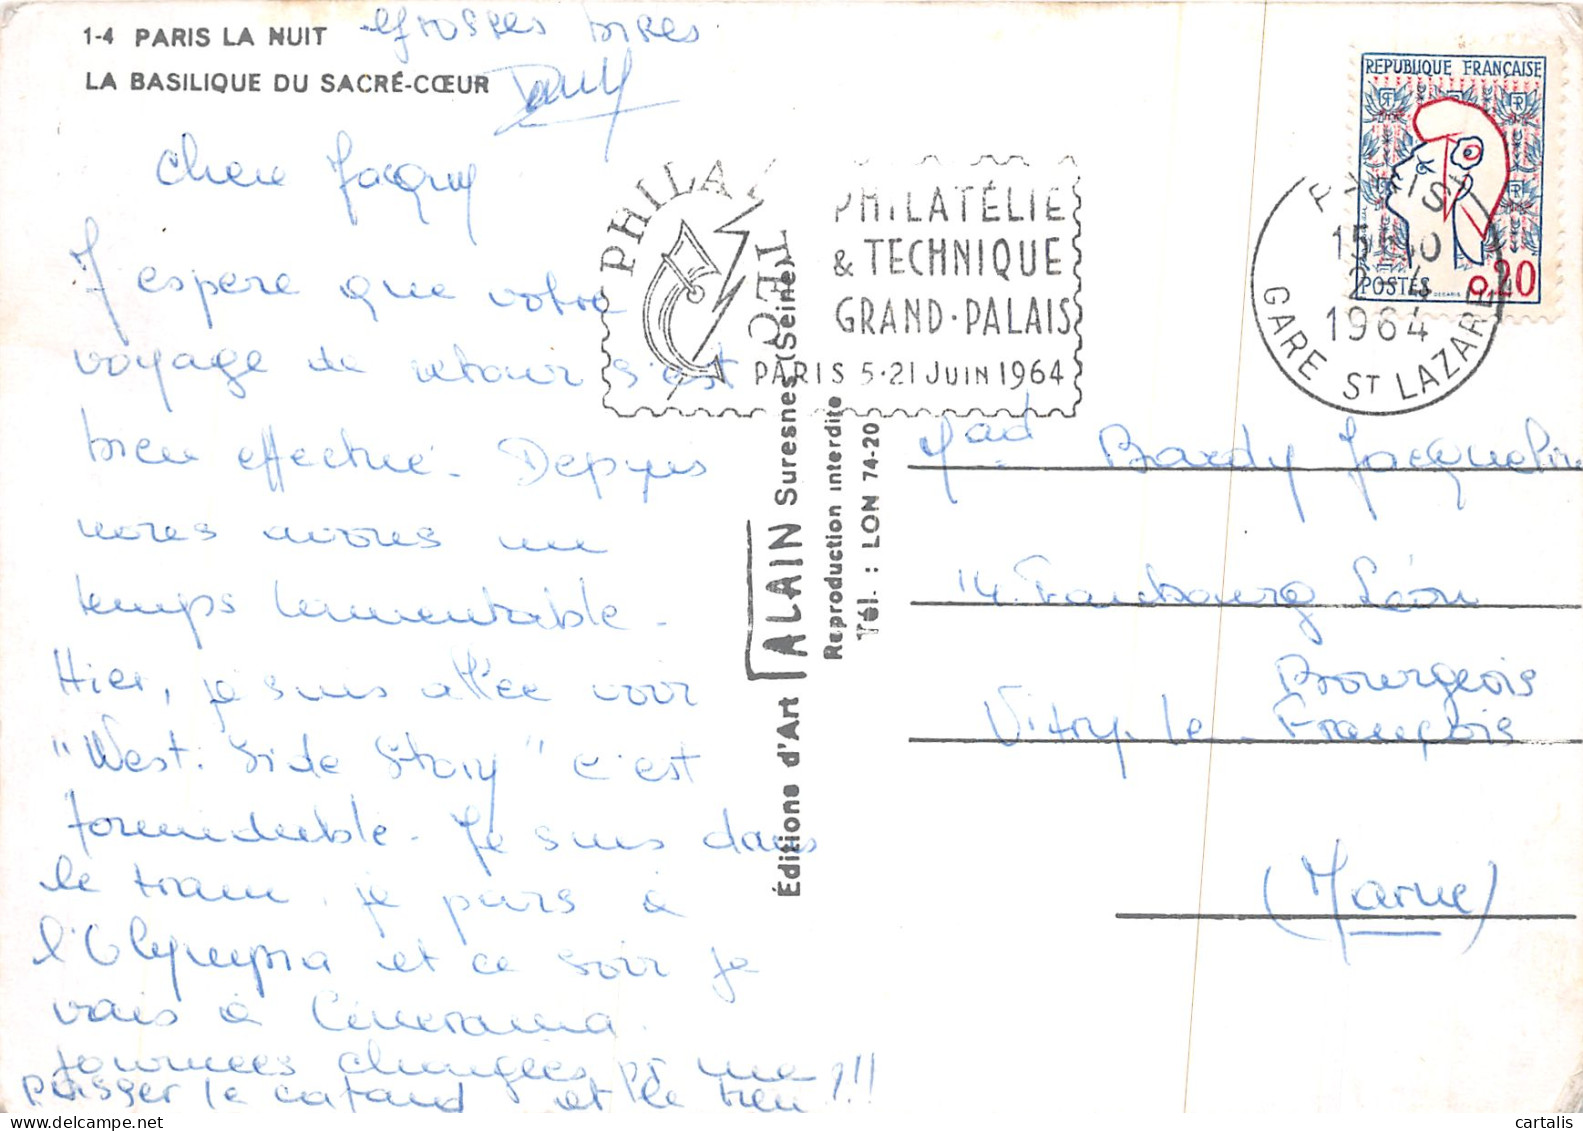 1-4 PARIS LA NUIT
LA BASILIQUE DU SACRÉ-CŒUR
Grosses bises
Dany
Chère Jacquy
J'espère que votre
voyage de retour s'est
bien effectué. Depuys
nous avons un
temps lamentable.
Hier, je suis allée voir
"West. Side Story" c'est
formidable. Je suis dans
le train, je pars à
l'Olympia et ce soir je
vais à Cinerama.
journées chargées pr me
passer le cafard et le tien !!!
Éditions d'Art ALAIN Suresnes (Seine)
Reproduction interdite
Tél. : LON 74-20
PHILATEC
PHILATÉLIE
& TECHNIQUE
GRAND-PALAIS
PARIS 5-21 JUIN 1964
REPUBLIQUE FRANÇAISE
RF
RF
POSTES
DECARIS
0,20
PARIS
15H30
2-4
1964
GARE ST LAZARE
Bardy Jacqueline
14. Faubourg Léon
Bourgeois
Vitry-le-François
(Marne)
© www.delcampe.net
cartalis